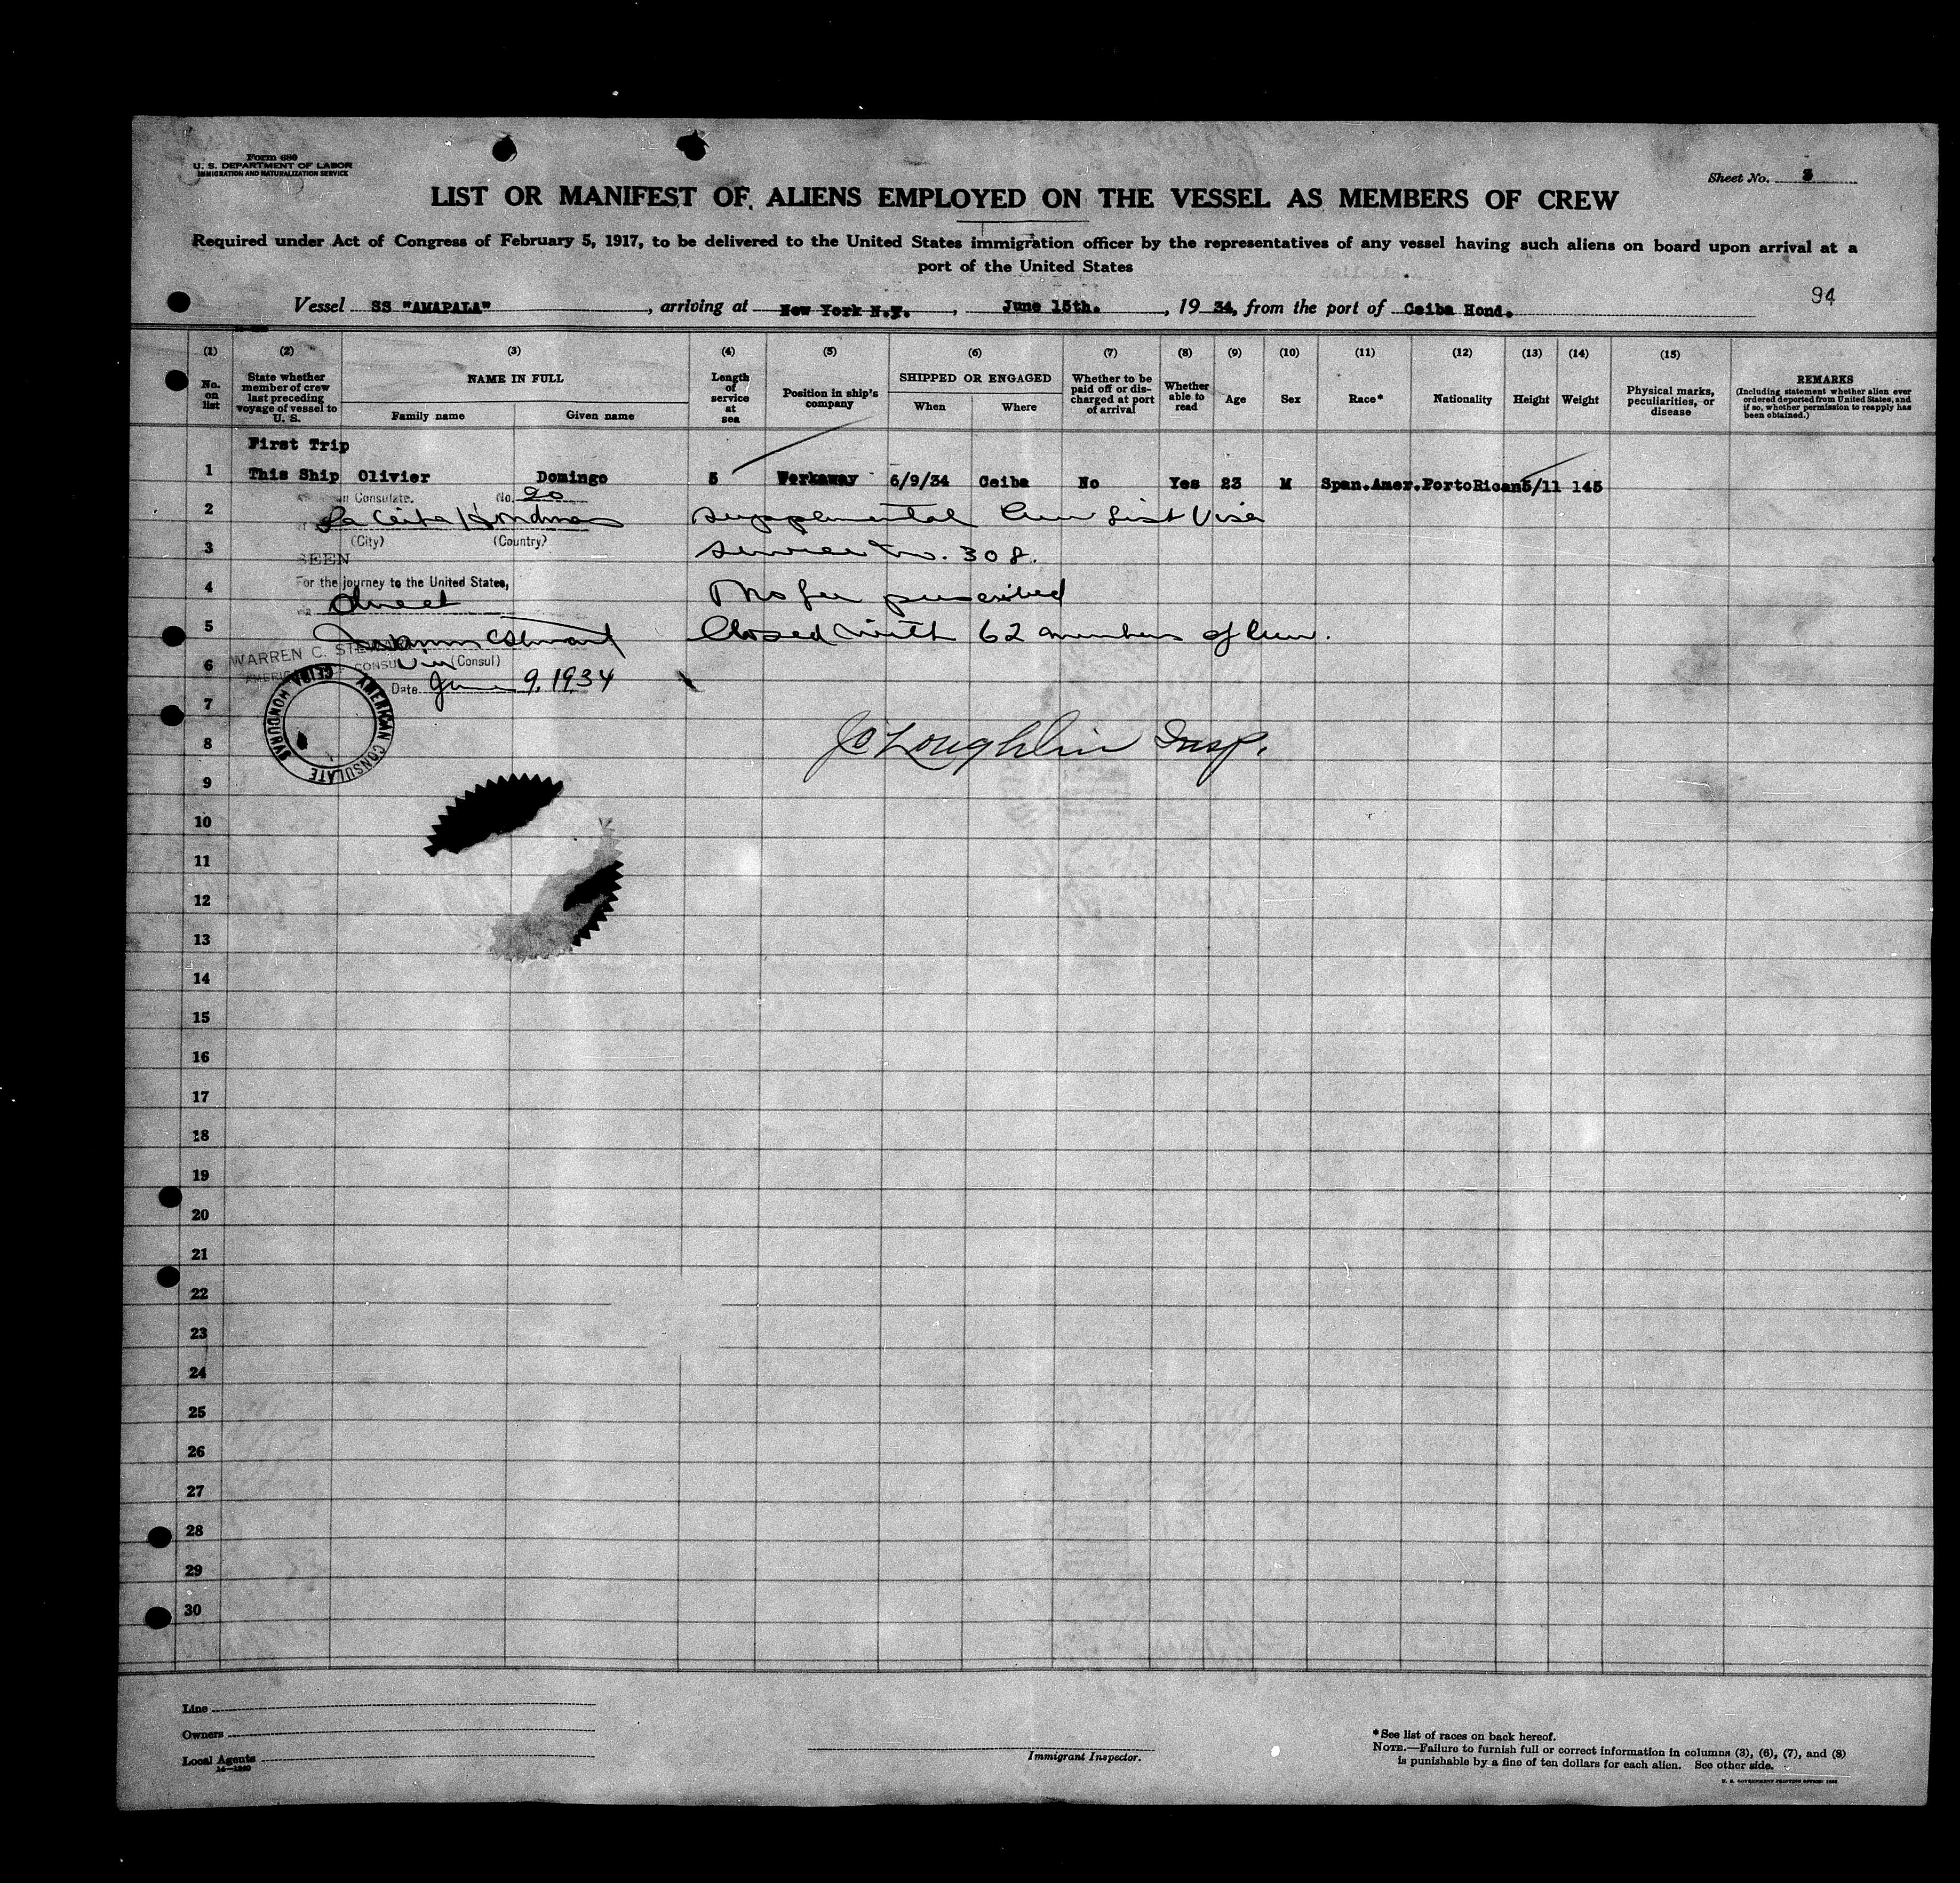 Form 680
U. S. DEPARTMENT OF LABOR
IMMIGRATION AND NATURALIZATION SERVICE
Sheet No. 3
LIST OR MANIFEST OF ALIENS EMPLOYED ON THE VESSEL AS MEMBERS OF CREW
Required under Act of Congress of February 5, 1917, to be delivered to the United States immigration officer by the representatives of any vessel having such aliens on board upon arrival at a
port of the United States
94
Vessel SS "AMAPALA", arriving at New York N.Y., June 15th., 19 34, from the port of Ceiba Hond.
(1) (2) (3) (4) (5) (6) (7) (8) (9) (10) (11) (12) (13) (14) (15)
No. on list
State whether member of crew last preceding voyage of vessel to U. S.
NAME IN FULL
Family name Given name
Length of service at sea
Position in ship's company
SHIPPED OR ENGAGED
When Where
Whether to be paid off or discharged at port of arrival
Whether able to read
Age Sex Race* Nationality Height Weight
Physical marks, peculiarities, or disease
REMARKS
(Including statement whether alien ever ordered deported from United States, and if so, whether permission to reapply has been obtained.)
First Trip
1 This Ship Olivier Domingo 5 Workaway 6/9/34 Ceiba No Yes 23 M Span.Amer. PortoRican 5/11 145
Consulate. No. 20
2 La Ceiba Honduras Supplemental Crew List Visa
(City) (Country)
3 Service No. 308.
SEEN
4 For the journey to the United States, No fee prescribed
direct
5 Warren C Stewart Closed with 62 members of crew.
WARREN C. STEWART
6 Vice (Consul)
AMERICAN VICE CONSUL
Date June 9, 1934
7
AMERICAN CONSULATE CEIBA HONDURAS
8 JO'Loughlin Insp.
9
10
11
12
13
14
15
16
17
18
19
20
21
22
23
24
25
26
27
28
29
30
Line
Owners
Local Agents
Immigrant Inspector.
*See list of races on back hereof.
NOTE.—Failure to furnish full or correct information in columns (3), (6), (7), and (8)
is punishable by a fine of ten dollars for each alien. See other side.